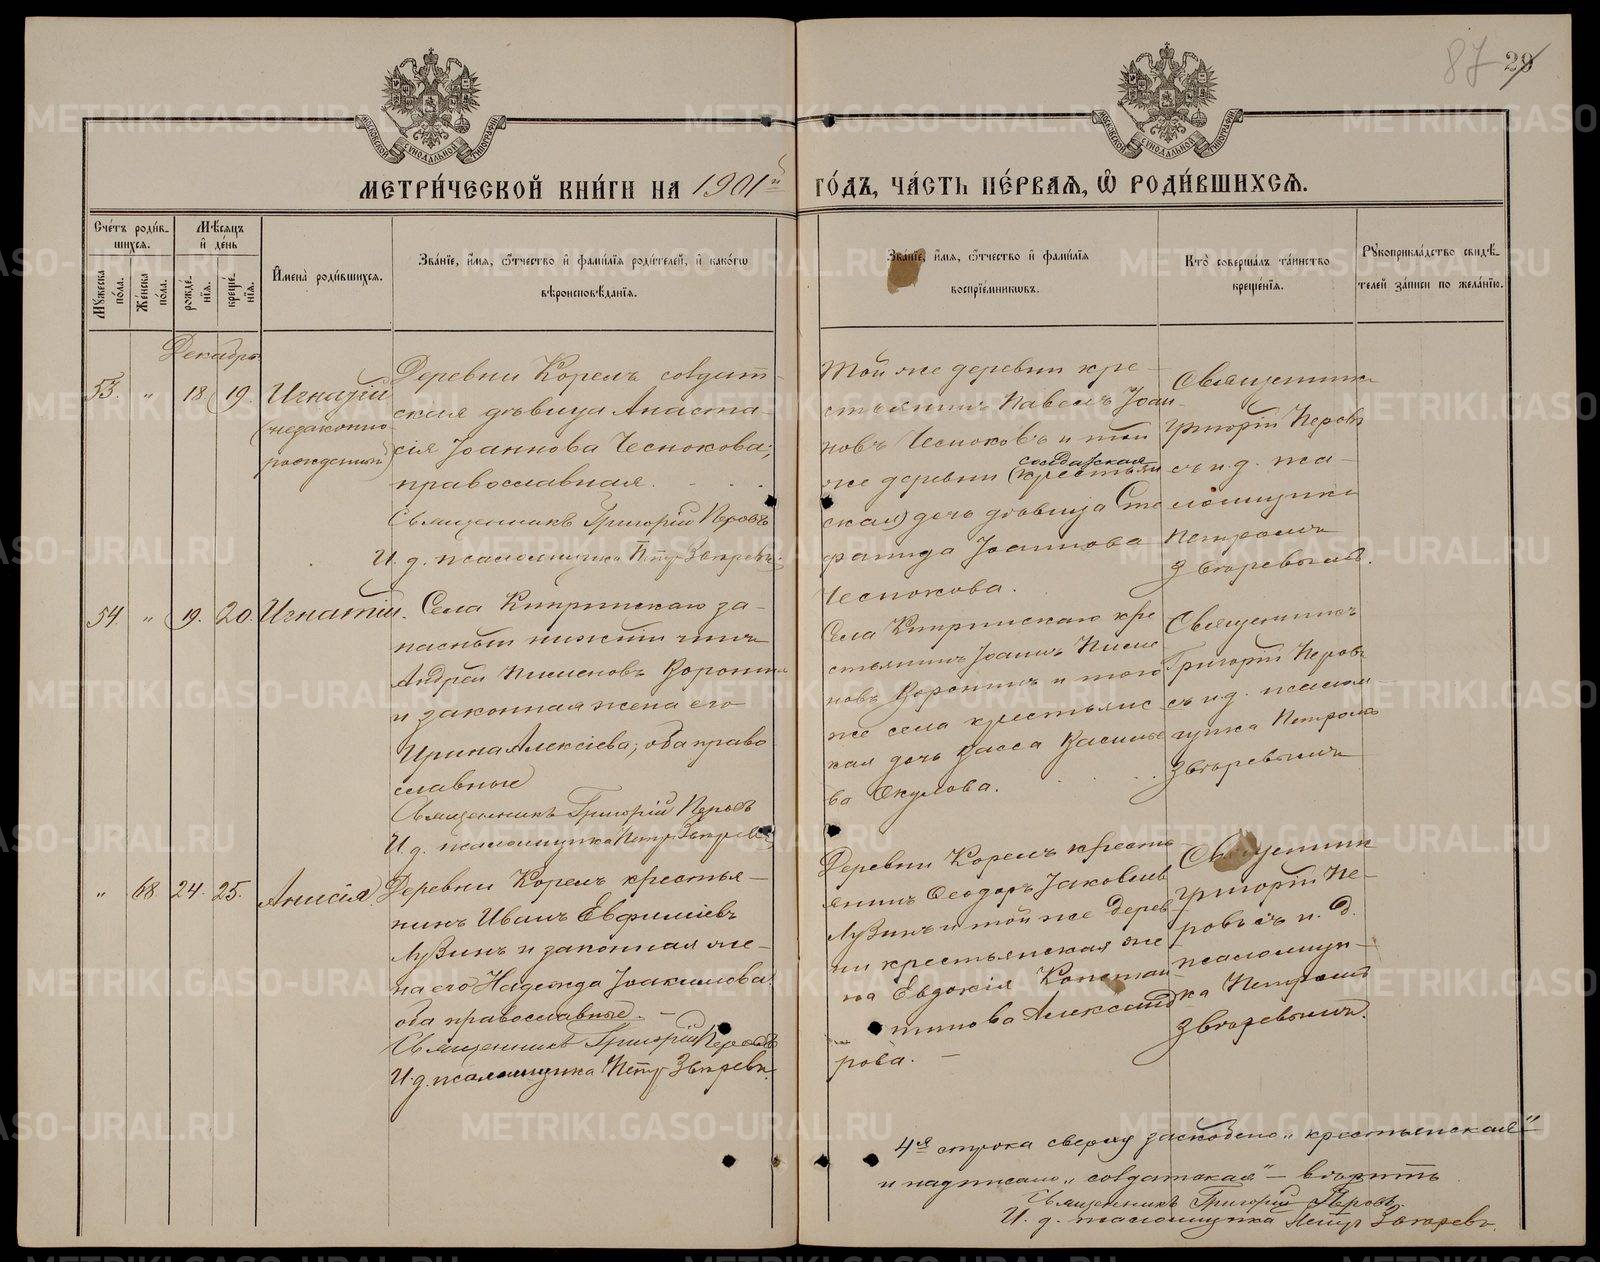 87 29
МЕТРИЧЕСКОЙ КНИГИ НА 1901й ГОДЪ, ЧАСТЬ ПЕРВАЯ, Ѡ РОДИВШИХСЯ.
Счетъ родив-
шихся.
Мужеска пола.
Женска пола.
Мѣсяцъ
и день
рожде-
нія.
креще-
нія.
Имена родившихся.
Званіе, имя, ѿчество и фамилія родителей, и какогѡ
вѣроисповѣданія.
Званіе, имя, ѿчество и фамилія
воспріемниковъ.
Кто совершалъ таинство
крещенія.
Рукоприкладство свидѣ-
телей записи по желанію.
Декабрь
53. " 18. 19. Игнатій
(незаконно-
рожденный)
Деревни Корелъ солдат-
ская дѣвица Анаста-
сія Іоаннова Чеснокова;
православная.
Священникъ Григорій Перовъ
И. д. псаломщика Петръ Звѣревъ.
Той же деревни кре-
стьянинъ Павелъ Іоан-
новъ Чесноковъ и той
же деревни солдатская (крестьян
ская) дочь дѣвица Сте
фанида Іоаннова
Чеснокова.
Священникъ
Григорій Перовъ
съ и. д. пса-
ломщика
Петромъ
Звѣревымъ.
54. " 19. 20. Игнатій.
Села Кипринскаго за-
пасный нижній чинъ
Андрей Пименовъ Воронинъ
и законная жена его
Ирина Алексіева; оба право
славные
Священникъ Григорій Перовъ
И. д. псаломщика Петръ Звѣревъ
Села Кипринскаго кре
стьянинъ Іоаннъ Пиме
новъ Воронинъ и того
же села крестьянс
кая дочь Васса Василье
ва Окулова.
Священникъ
Григорій Перовъ
съ и. д. псалом
щика Петромъ
Звѣревымъ
" 68. 24. 25. Анисія.
Деревни Корелъ крестья-
нинъ Иванъ Евфиміевъ
Лузинъ и законная же-
на его Надежда Іоакимова
оба православные. —
Священникъ Григорій Перовъ
И. д. псаломщика Петръ Звѣревъ.
Деревни Корелъ кресть
янинъ Ѳеодоръ Іаковлевъ
Лузинъ и той же дерев
ни крестьянская же
на Евдокія Констан
тинова Александ
рова. —
Священник
Григорій Пе-
ровъ съ и. д.
псаломщи-
ка Петромъ
Звѣревымъ.
4я строка сверху заскоблено „крестьянская"
и надписано „солдатская" — вѣрить
Священникъ Григорій Перовъ.
И. д. псаломщика Петръ Звѣревъ.
METRIKI.GASO-URAL.RU